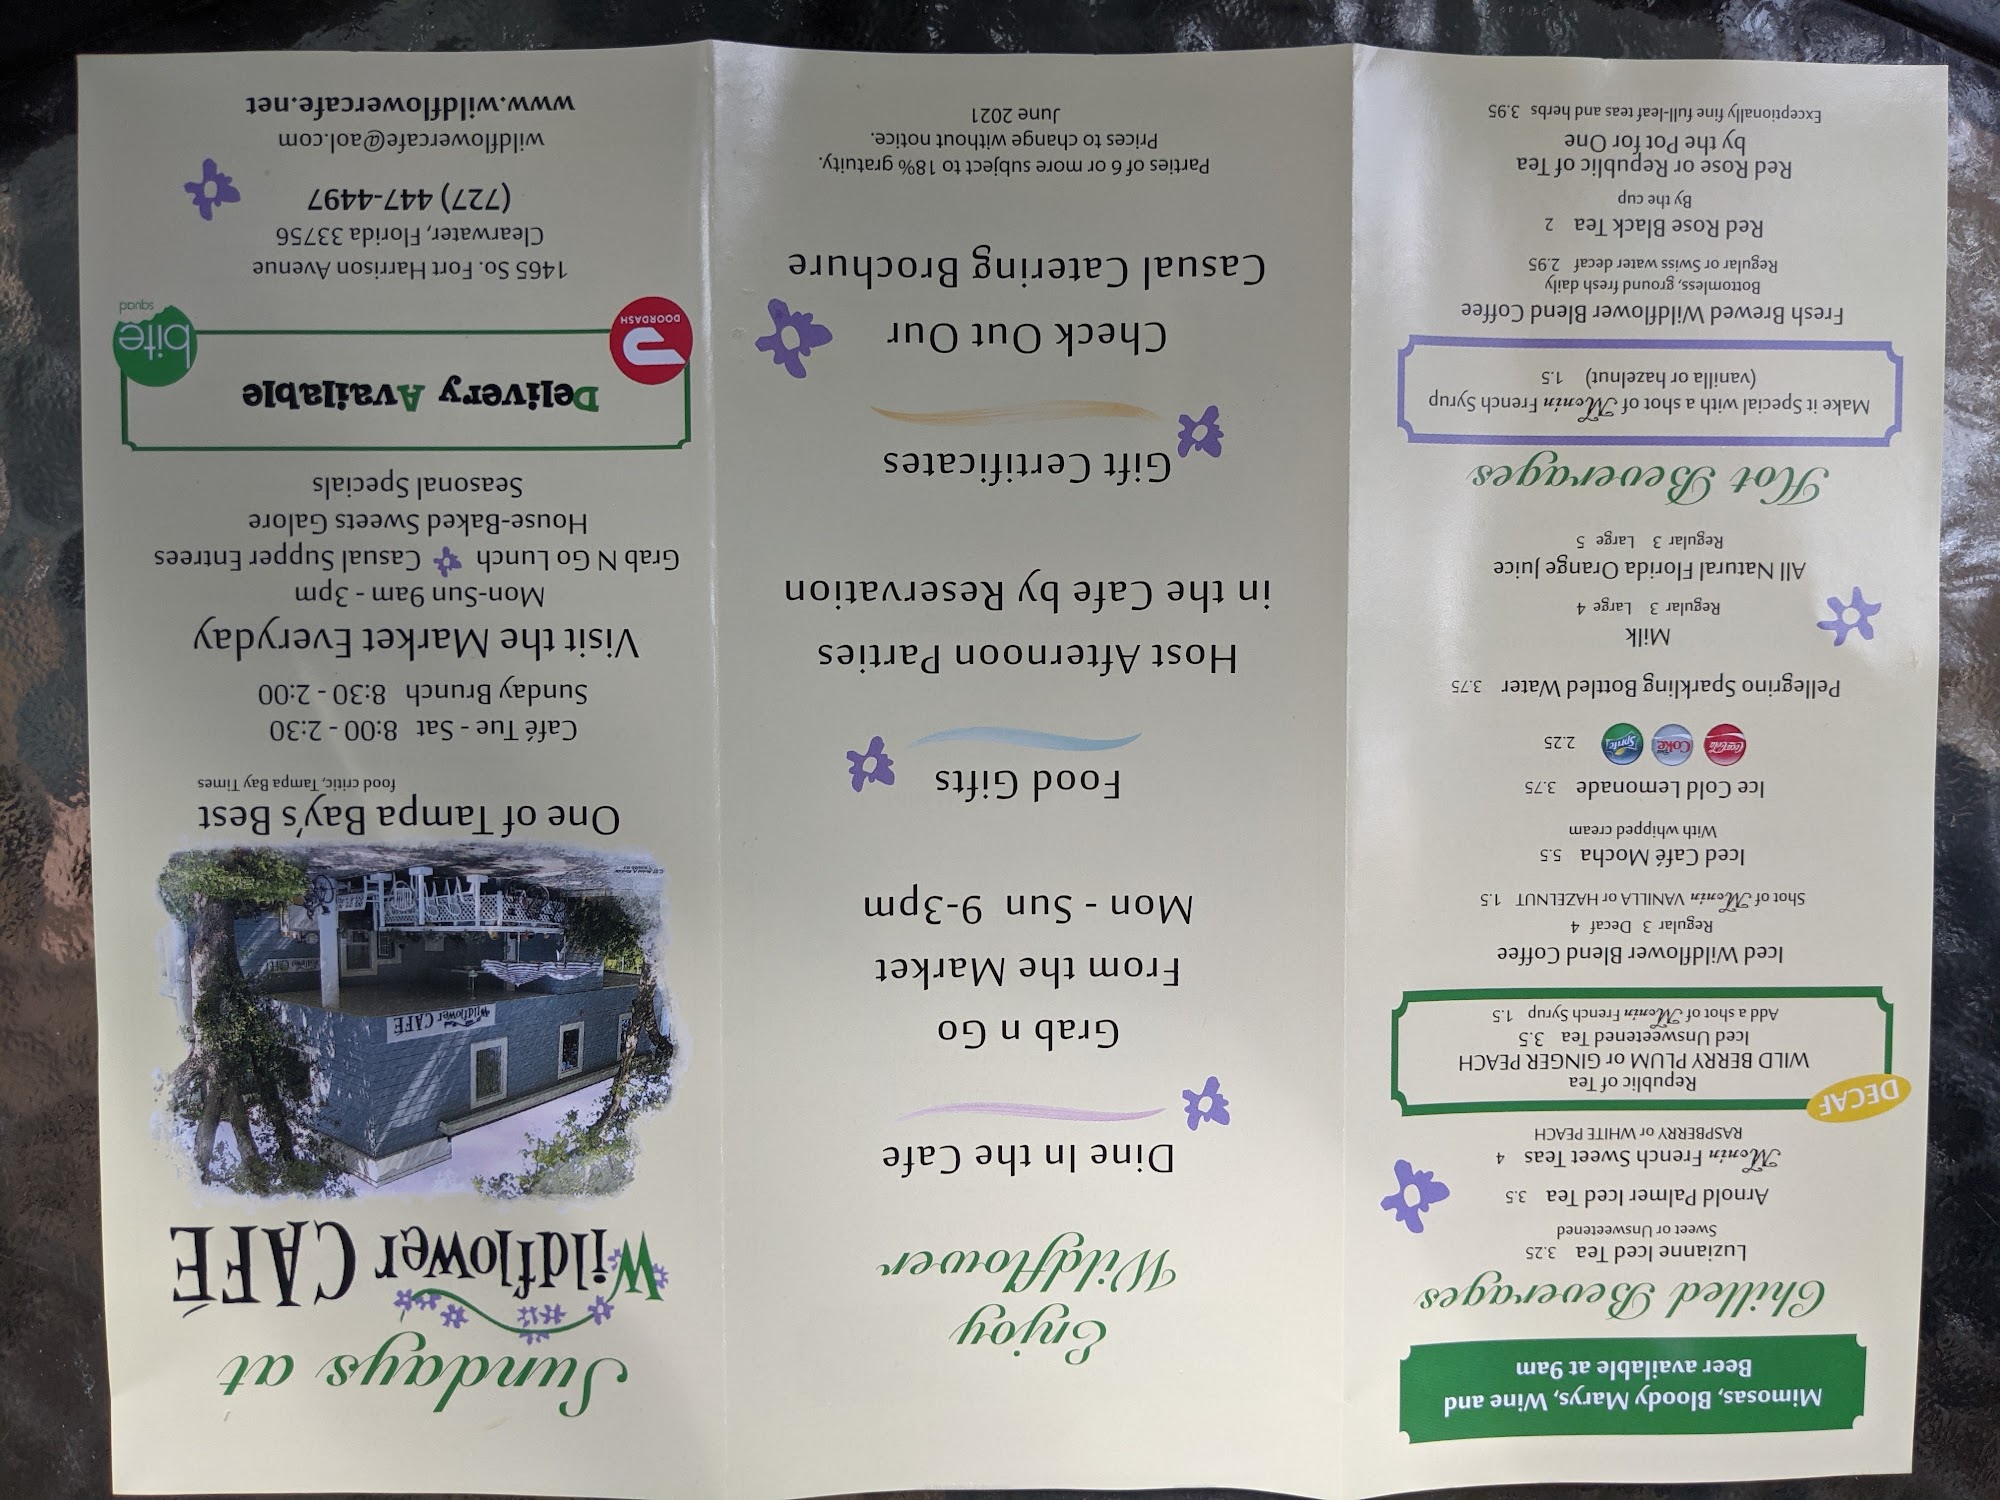 Mimosas, Bloody Marys, Wine and
Beer available at 9am
Chilled Beverages
Luzianne Iced Tea 3.25
Sweet or Unsweetened
Arnold Palmer Iced Tea 3.5
Monin French Sweet Teas 4
RASPBERRY or WHITE PEACH
DECAF
Republic of Tea
WILD BERRY PLUM or GINGER PEACH
Iced Unsweetened Tea 3.5
Add a shot of Monin French Syrup 1.5
Iced Wildflower Blend Coffee
Regular 3 Decaf 4
Shot of Monin VANILLA or HAZELNUT 1.5
Iced Café Mocha 5.5
With whipped cream
Ice Cold Lemonade 3.75
Coca-Cola Coke Sprite 2.25
Pellegrino Sparkling Bottled Water 3.75
Milk
Regular 3 Large 4
All Natural Florida Orange Juice
Regular 3 Large 5
Hot Beverages
Make it Special with a shot of Monin French Syrup
(vanilla or hazelnut) 1.5
Fresh Brewed Wildflower Blend Coffee
Bottomless, ground fresh daily
Regular or Swiss water decaf 2.95
Red Rose Black Tea 2
By the cup
Red Rose or Republic of Tea
by the Pot for One
Exceptionally fine full-leaf teas and herbs 3.95
Enjoy
Wildflower
Dine In the Cafe
Grab n Go
From the Market
Mon - Sun 9-3pm
Food Gifts
Host Afternoon Parties
in the Cafe by Reservation
Gift Certificates
Check Out Our
Casual Catering Brochure
Parties of 6 or more subject to 18% gratuity.
Prices to change without notice.
June 2021
Sundays at
Wildflower CAFÉ
Wildflower CAFÉ
One of Tampa Bay's Best
food critic, Tampa Bay Times
Café Tue - Sat 8:00 - 2:30
Sunday Brunch 8:30 - 2:00
Visit the Market Everyday
Mon-Sun 9am - 3pm
Grab N Go Lunch Casual Supper Entrees
House-Baked Sweets Galore
Seasonal Specials
Delivery Available
DOORDASH
bite
squad
1465 So. Fort Harrison Avenue
Clearwater, Florida 33756
(727) 447-4497
wildflowercafe@aol.com
www.wildflowercafe.net